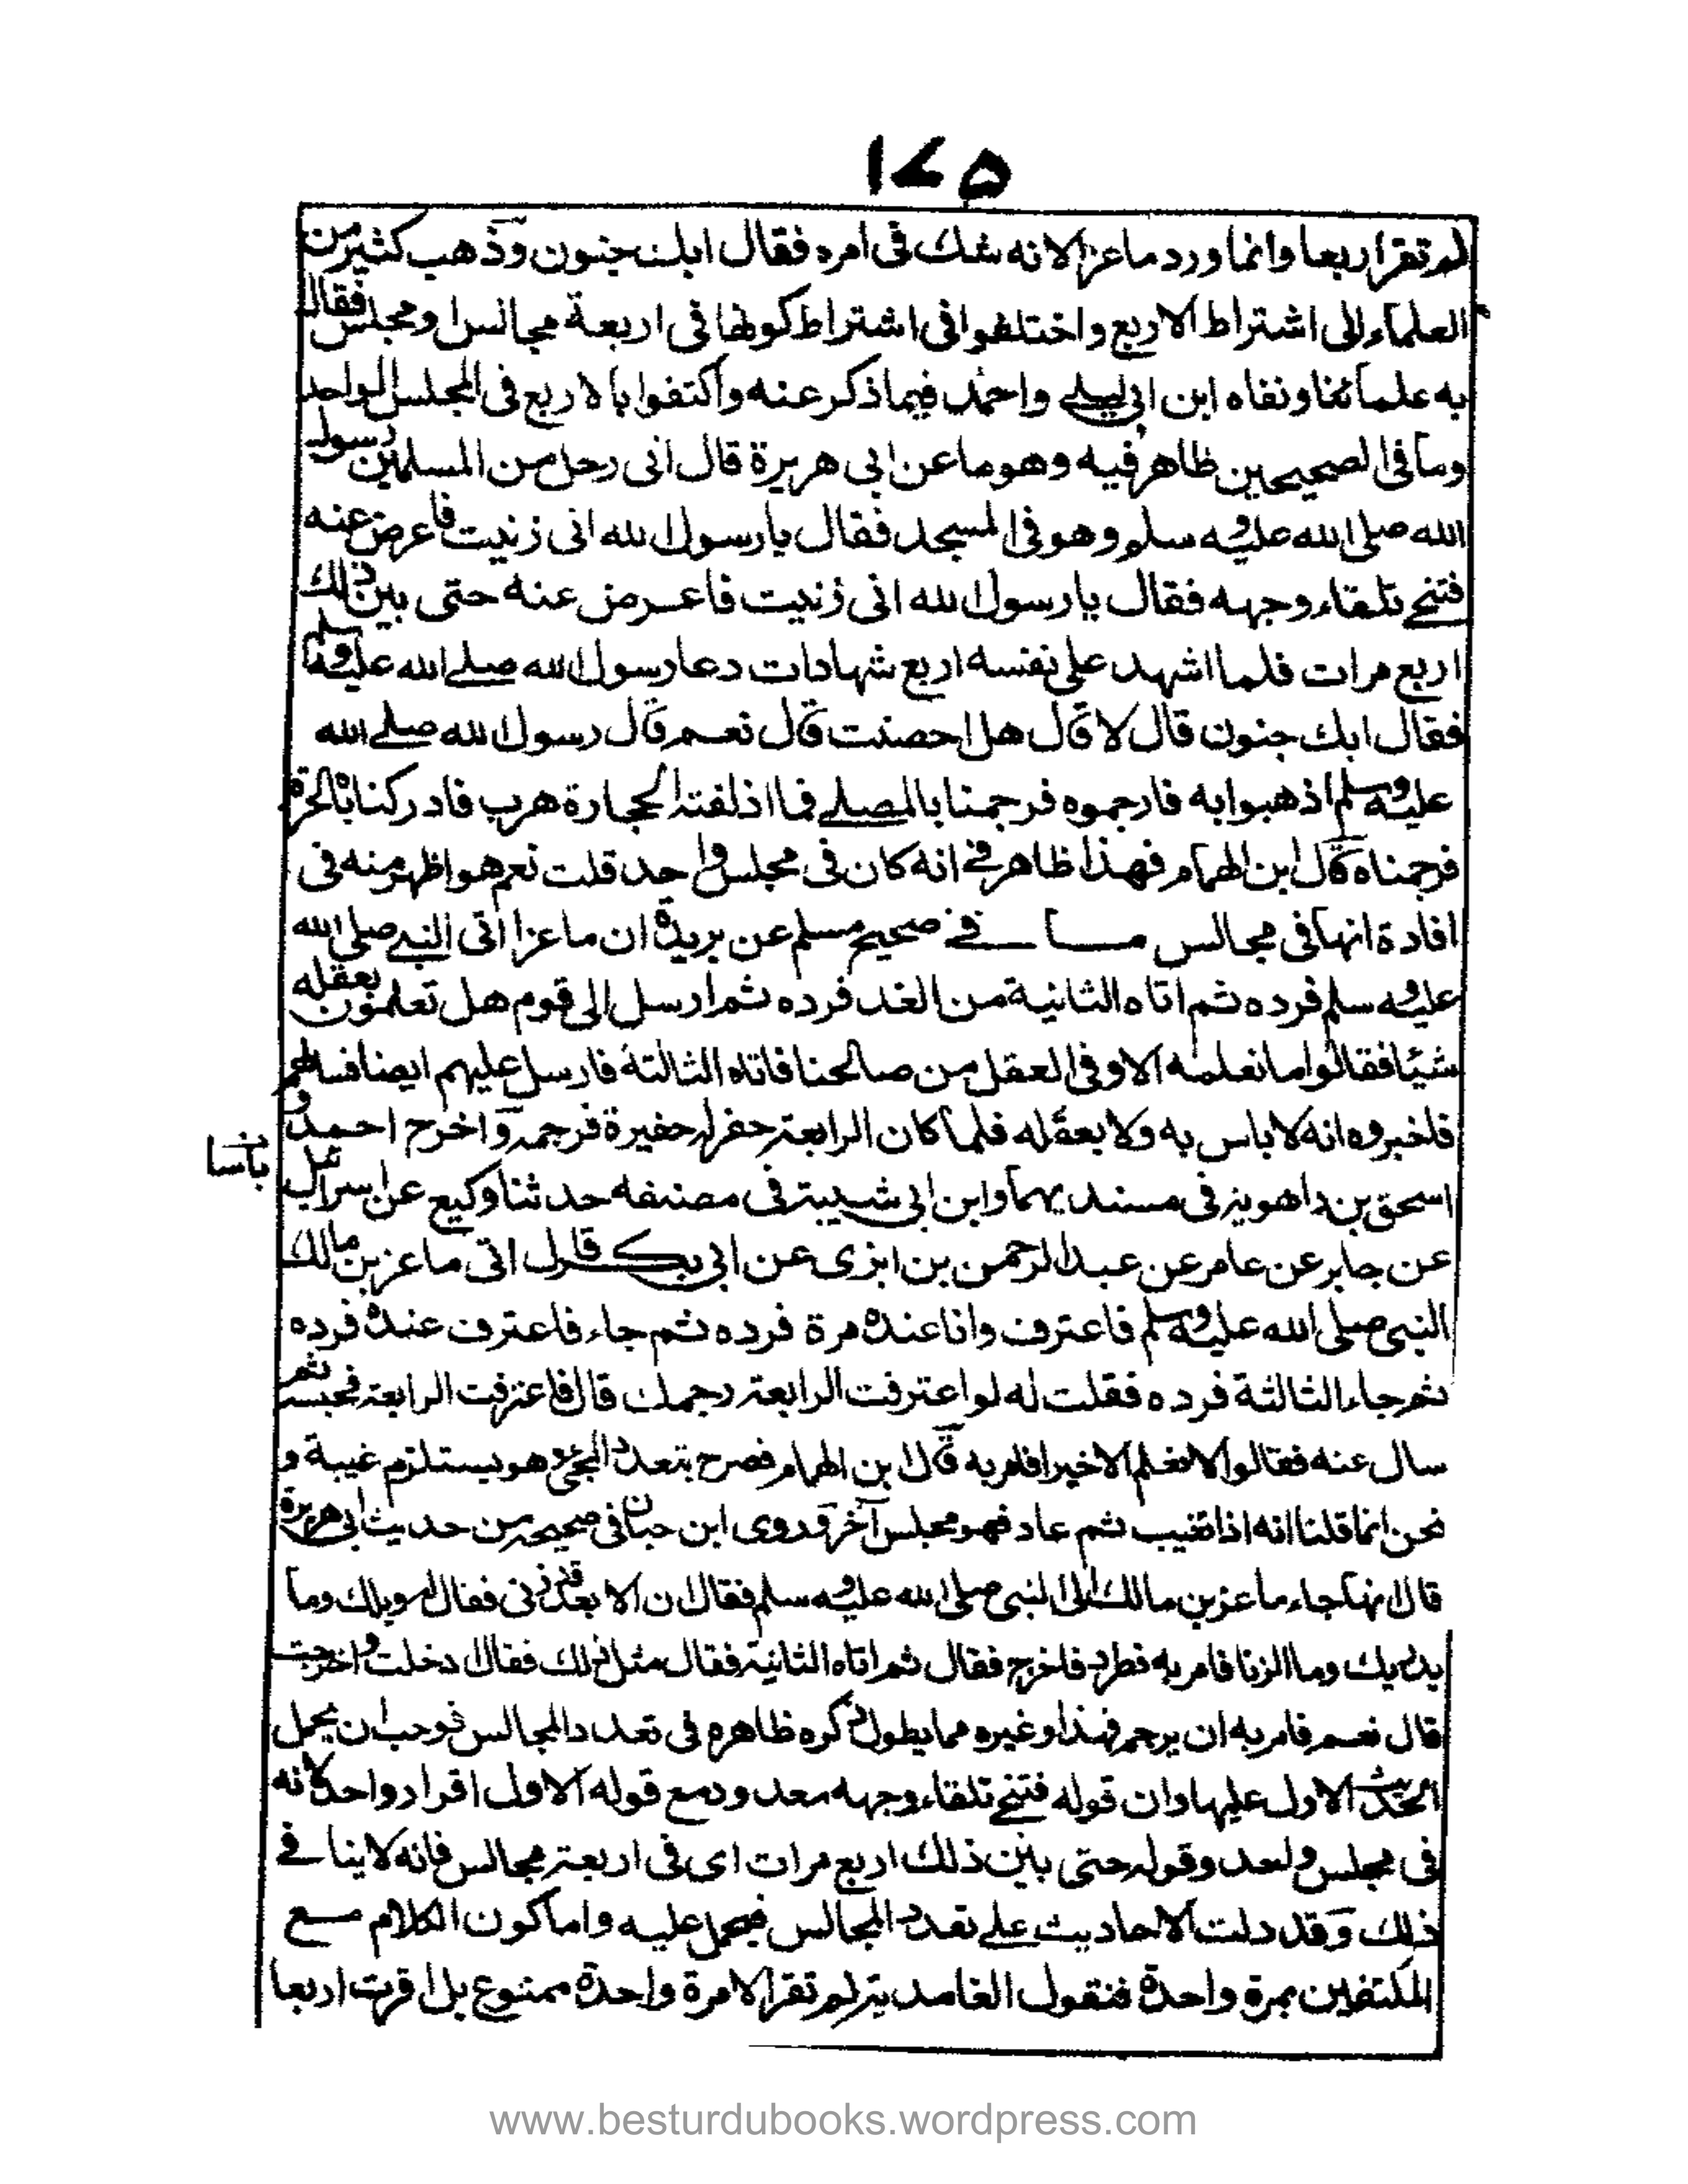 ۱۷۵
لم تقر اربعا وانما ورد ماعزا لانه شك فى امره فقال ابك جنون وذهب كثير من
العلماء الى اشتراط الاربع واختلفوا فى اشتراط كونها فى اربعة مجالس او مجلس فقال
به علمائنا ونفاه ابن ابى ليلے واحمد فيما ذكر عنه واكتفوا بالاربع فى المجلس الواحد
وما فى الصحيحين ظاهر فيه وهو ما عن ابى هريرة قال اتى رجل من المسلمين رسول
الله صلى الله عليه وسلم وهو فى المسجد فقال يا رسول الله انى زنيت فاعرض عنه
فتنحے تلقاء وجهه فقال يا رسول الله انى زنيت فاعرض عنه حتى بين ذلك
اربع مرات فلما اشهد على نفسه اربع شهادات دعا رسول الله صلے الله عليه وسلم
فقال ابك جنون قال لا قال هل احصنت قال نعم قال رسول الله صلے الله
عليه وسلم اذهبوا به فارجموه فرجمنا بالمصلے فما اذلفته الحجارة هرب فادركناه بالحرة
فرجمناه قال ابن الهمام فهذا ظاهر فے انه كان فى مجلس واحد قلت نعم هو اظهر منه فى
افادة انها فى مجالس ما فے صحيح مسلم عن بريدة ان ماعزا اتى النبے صلى الله
عليه وسلم فرده ثم اتاه الثانية من الغد فرده ثم ارسل الى قوم هل تعلمون بعقله
شيئا فقالوا ما نعلمه الا وفى العقل من صالحنا فاتاه الثالثة فارسل عليهم ايضا فسالهم
فاخبروه انه لا باس به ولا بعقله فلما كان الرابعة حفر له حفيرة فرجمه واخرج احمد و
باسا
اسحق بن راهويه فى مسنديهما وابن ابى شيبة فى مصنفه حدثنا وكيع عن اسرائيل
عن جابر عن عامر عن عبد الرحمن بن ابزى عن ابى بكر قال اتى ماعز بن مالك
النبى صلى الله عليه وسلم فاعترف وانا عنده مرة فرده ثم جاء فاعترف عنده فرده
ثم جاء الثالثة فرده فقلت له لو اعترفت الرابعة رجمك قال فاعترفت الرابعة فحبسه ثم
سال عنه فقالوا لا نعلم الا خيرا فامر به قال ابن الهمام فصرح بتعدد المجئ وهو يستلزم غيبة و
نحن انما قلنا انه اذا تغيب ثم عاد فهو مجلس آخر وروى ابن حبان فى صحيحه من حديث ابى هريرة
قال انها جاء ماعز بن مالك الى النبى صلى الله عليه وسلم فقال ان الا بعد قد زنى فقال له ويلك وما
يدريك وما الزنا فامر به فطرد فاخرج فقال ثم اتاه الثانية فقال مثل ذلك فقال ادخلت واخرجت
قال نعم فامر به ان يرجم فهذا وغيره مما يطول ذكره ظاهره فى تعدد المجالس فوجب ان يحمل
الحديث الاول عليها وان قوله فتنحے تلقاء وجهه معدود مع قوله الاول اقرار واحد لانه
فى مجلس واحد وقوله حتى بين ذلك اربع مرات اى فى اربعة مجالس فانه لا ينافے
ذلك وقد دلت الاحاديث علے تعدد المجالس فيحمل عليه واما كون الكلام مع
المكتفين بمرة واحدة فنقول الغامدية لم تقر الا مرة واحدة ممنوع بل اقرت اربعا
www.besturdubooks.wordpress.com